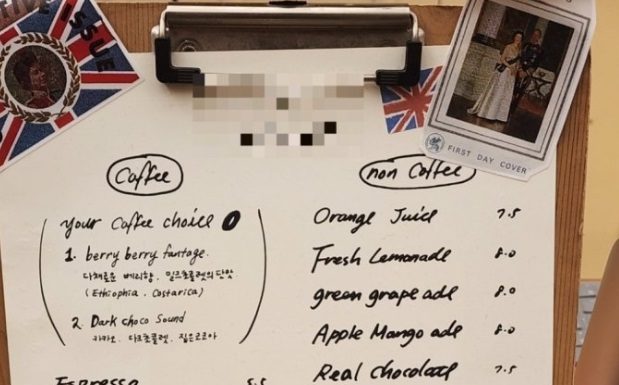 ISSUE
FIRST DAY COVER
Coffee
your Coffee choice
1. berry berry fantage.
다채로운 베리향, 밀크초콜렛의 단맛
(Ethiophia, Costarica)
2. Dark choco Sound
카카오, 다크초콜렛, 짙은코코아
Espresso 5.5
non Coffee
Orange Juice 7.5
Fresh Lemonade 8.0
green grape ade 8.0
Apple Mango ade 8.0
Real Chocolate 7.5